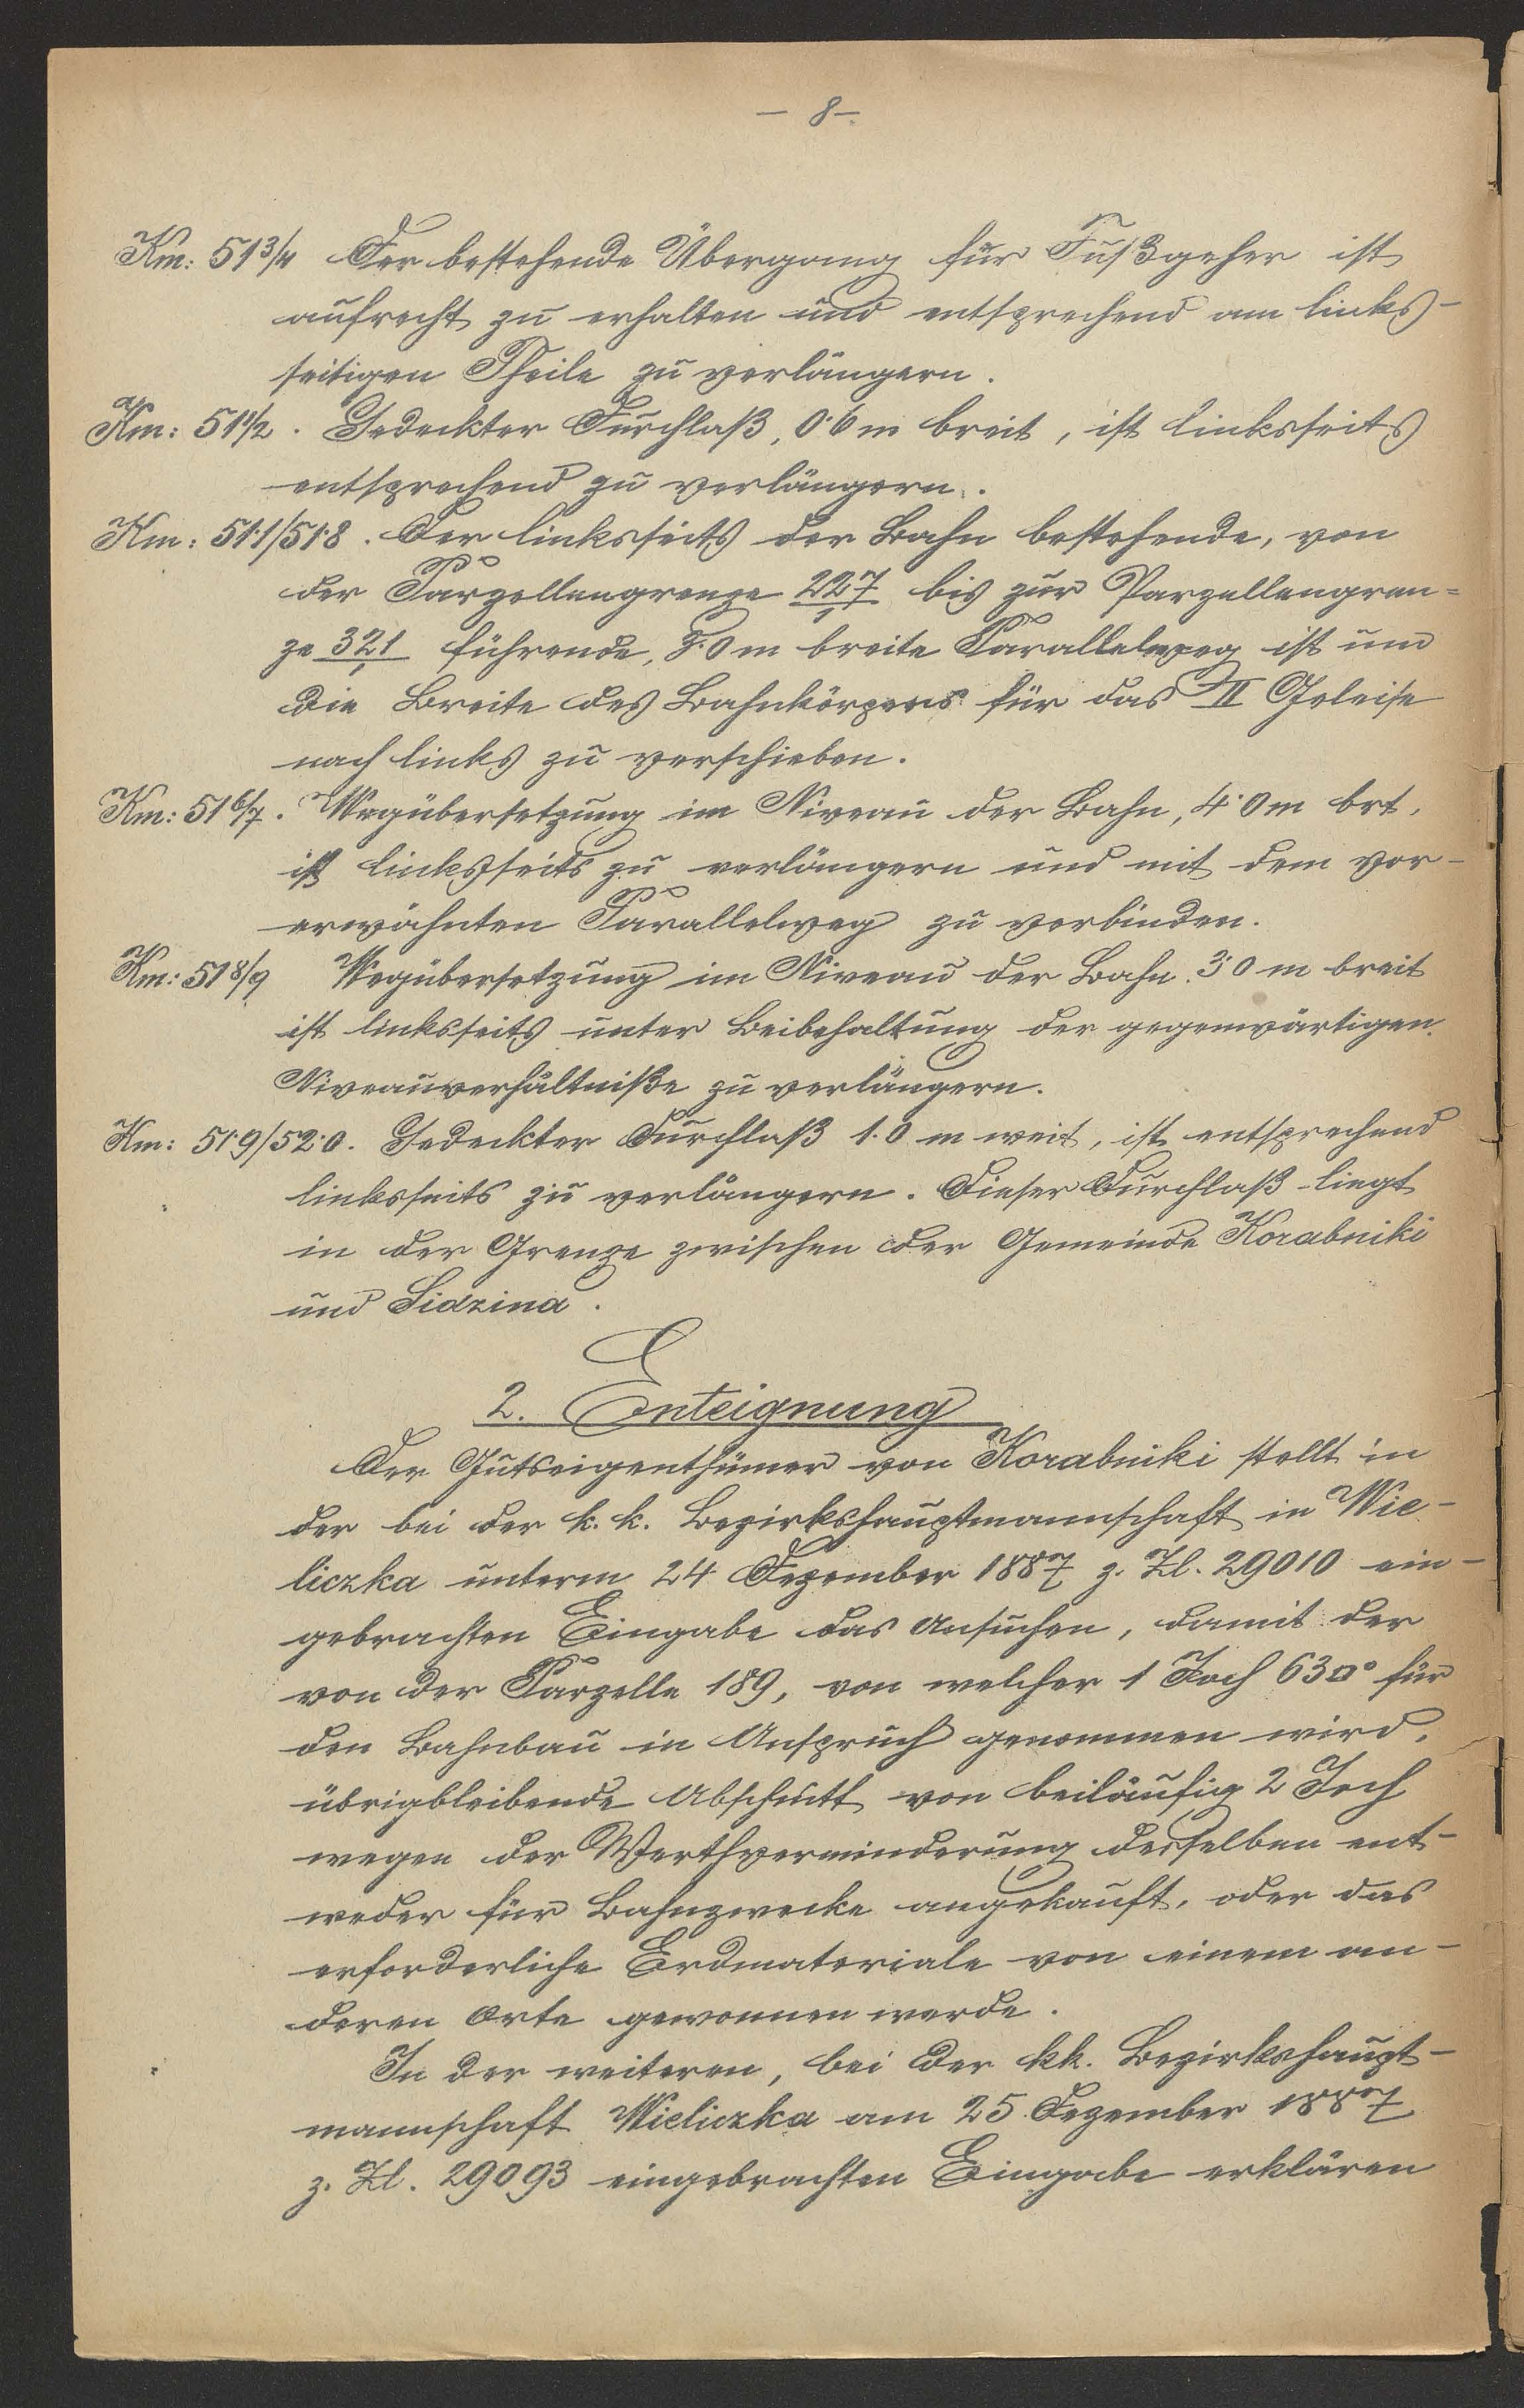 – 8 –.
Km: 51 3/4 Der bestehende Übergang für Fußgeher ist
aufrecht zu erhalten und entsprechend am links-
seitigen Theile zu verlängern.
Km: 51 1/2. Gedeckter Durchlaß, 0·6 m breit, ist linksseits
entsprechend zu verlängern.
Km: 51·1/51·8. Der linksseits der Bahn bestehende, von
der Parzellengrenze 227/1 bis zur Parzellengren=
ze 321/1 führende, 5·0 m breite Parallelweg ist um
die Breite des Bahnkörpers für das II Geleise
nach links zu verschieben.
Km: 51 6/7. Wegübersetzung im Niveau der Bahn, 4·0 m brt.
ist linksseits zu verlängern und mit dem vor-
erwähnten Parallelweg zu verbinden.
Km: 51 8/9 Wegübersetzung im Niveau der Bahn 3·0 m breit
ist linksseits unter Beibehaltung der gegenwärtigen
Niveauverhältniße zu verlängern.
Km: 51·9/52·0. Gedeckter Durchlaß 1·0 m weit, ist entsprechend
linksseits zu verlängern. Dieser Durchlaß liegt
in der Grenze zwischen der Gemeinde Korabniki
und Sidzina.
2. Enteignung
Der Gutseigenthümer von Korabniki stellt in
der bei der k. k. Bezirkshauptmannschaft in Wie-
liczka unterm 24 Dezember 1887 z. Zl. 29010 ein-
gebrachten Eingabe das Ansuchen, damit der
von der Parzelle 189, von welcher 1 Joch 63□° für
den Bahnbau in Anspruch genommen wird,
übrigbleibende Abschnitt von beiläufig 2 Joch
wegen der Werthverminderung desselben ent-
weder für Bahnzwecke angekauft, oder das
erforderliche Erdmateriale von einem an-
deren Orte gewonnen werde.
In der weiteren, bei der kk. Bezirkshaupt-
mannschaft Wieliczka am 25 Dezember 1887
z. Zl. 29093 eingebrachten Eingabe erklären